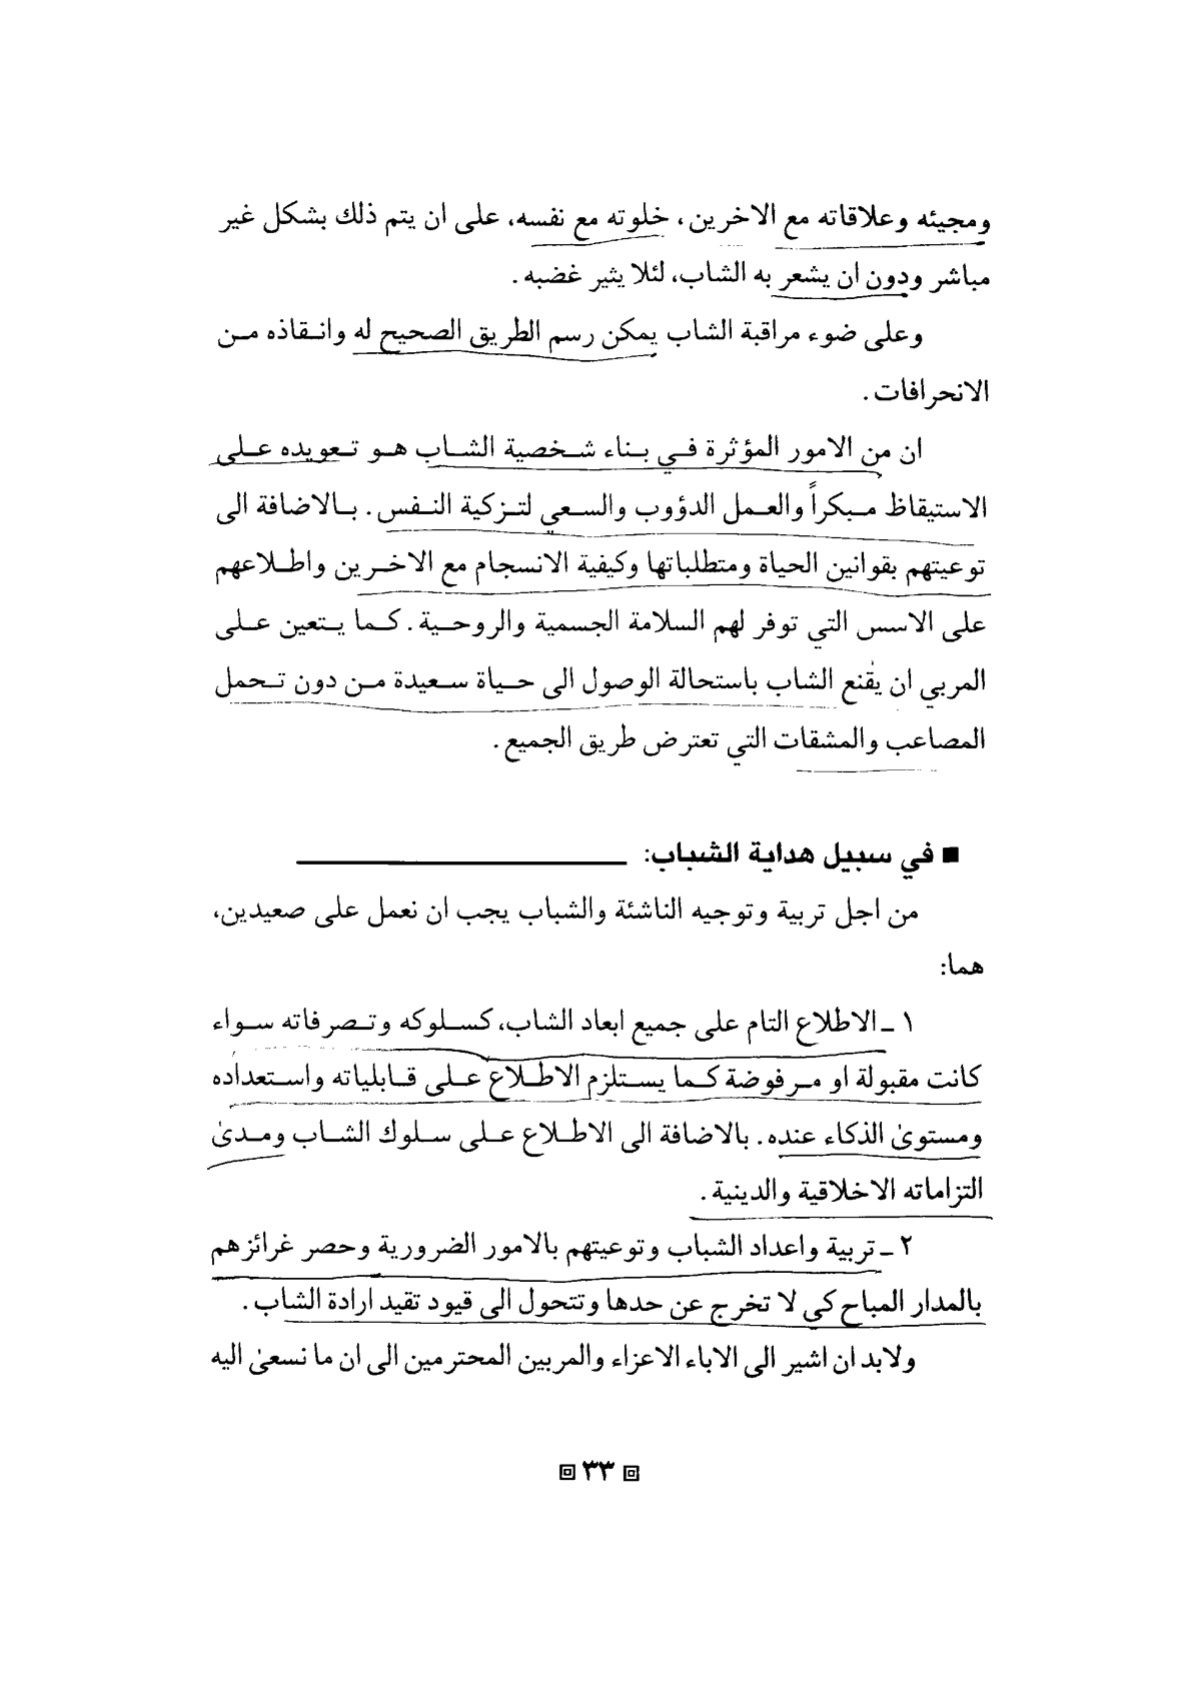 ومجيئه وعلاقاته مع الاخرين، خلوته مع نفسه، على ان يتم ذلك بشكل غير
مباشر ودون ان يشعر به الشاب، لئلا يثير غضبه.
وعلى ضوء مراقبة الشاب يمكن رسم الطريق الصحيح له وانقاذه من
الانحرافات.
ان من الامور المؤثرة في بناء شخصية الشاب هو تعويده على
الاستيقاظ مبكراً والعمل الدؤوب والسعي لتزكية النفس. بالاضافة الى
توعيتهم بقوانين الحياة ومتطلباتها وكيفية الانسجام مع الاخرين واطلاعهم
على الاسس التي توفر لهم السلامة الجسمية والروحية. كما يتعين على
المربي ان يقنع الشاب باستحالة الوصول الى حياة سعيدة من دون تحمل
المصاعب والمشقات التي تعترض طريق الجميع.
■ في سبيل هداية الشباب:
من اجل تربية وتوجيه الناشئة والشباب يجب ان نعمل على صعيدين،
هما:
١ ـ الاطلاع التام على جميع ابعاد الشاب، كسلوكه وتصرفاته سواء
كانت مقبولة او مرفوضة كما يستلزم الاطلاع على قابلياته واستعداده
ومستوىٰ الذكاء عنده. بالاضافة الى الاطلاع على سلوك الشاب ومدىٰ
التزاماته الاخلاقية والدينية.
٢ ـ تربية واعداد الشباب وتوعيتهم بالامور الضرورية وحصر غرائزهم
بالمدار المباح كي لا تخرج عن حدها وتتحول الى قيود تقيد ارادة الشاب.
ولابد ان اشير الى الاباء الاعزاء والمربين المحترمين الى ان ما نسعىٰ اليه
٣٣